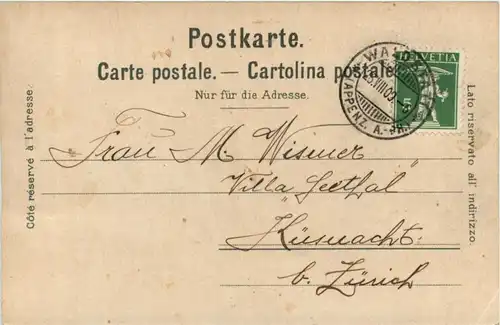 Postkarte.
Carte postale. — Cartolina postale
Nur für die Adresse.
Côté réservé à l'adresse.
Lato riservato all' indirizzo.
HELVETIA
5
WALD
(APPENZ. A.-RH.)
VIII.09
Frau M. Wismer
Villa Seethal
Küsnacht
b. Zürich